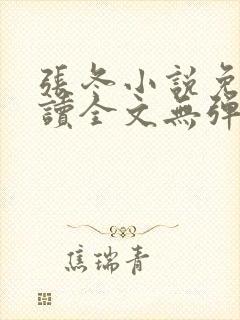 張冬小說免
讀全文無彈
焦瑞青